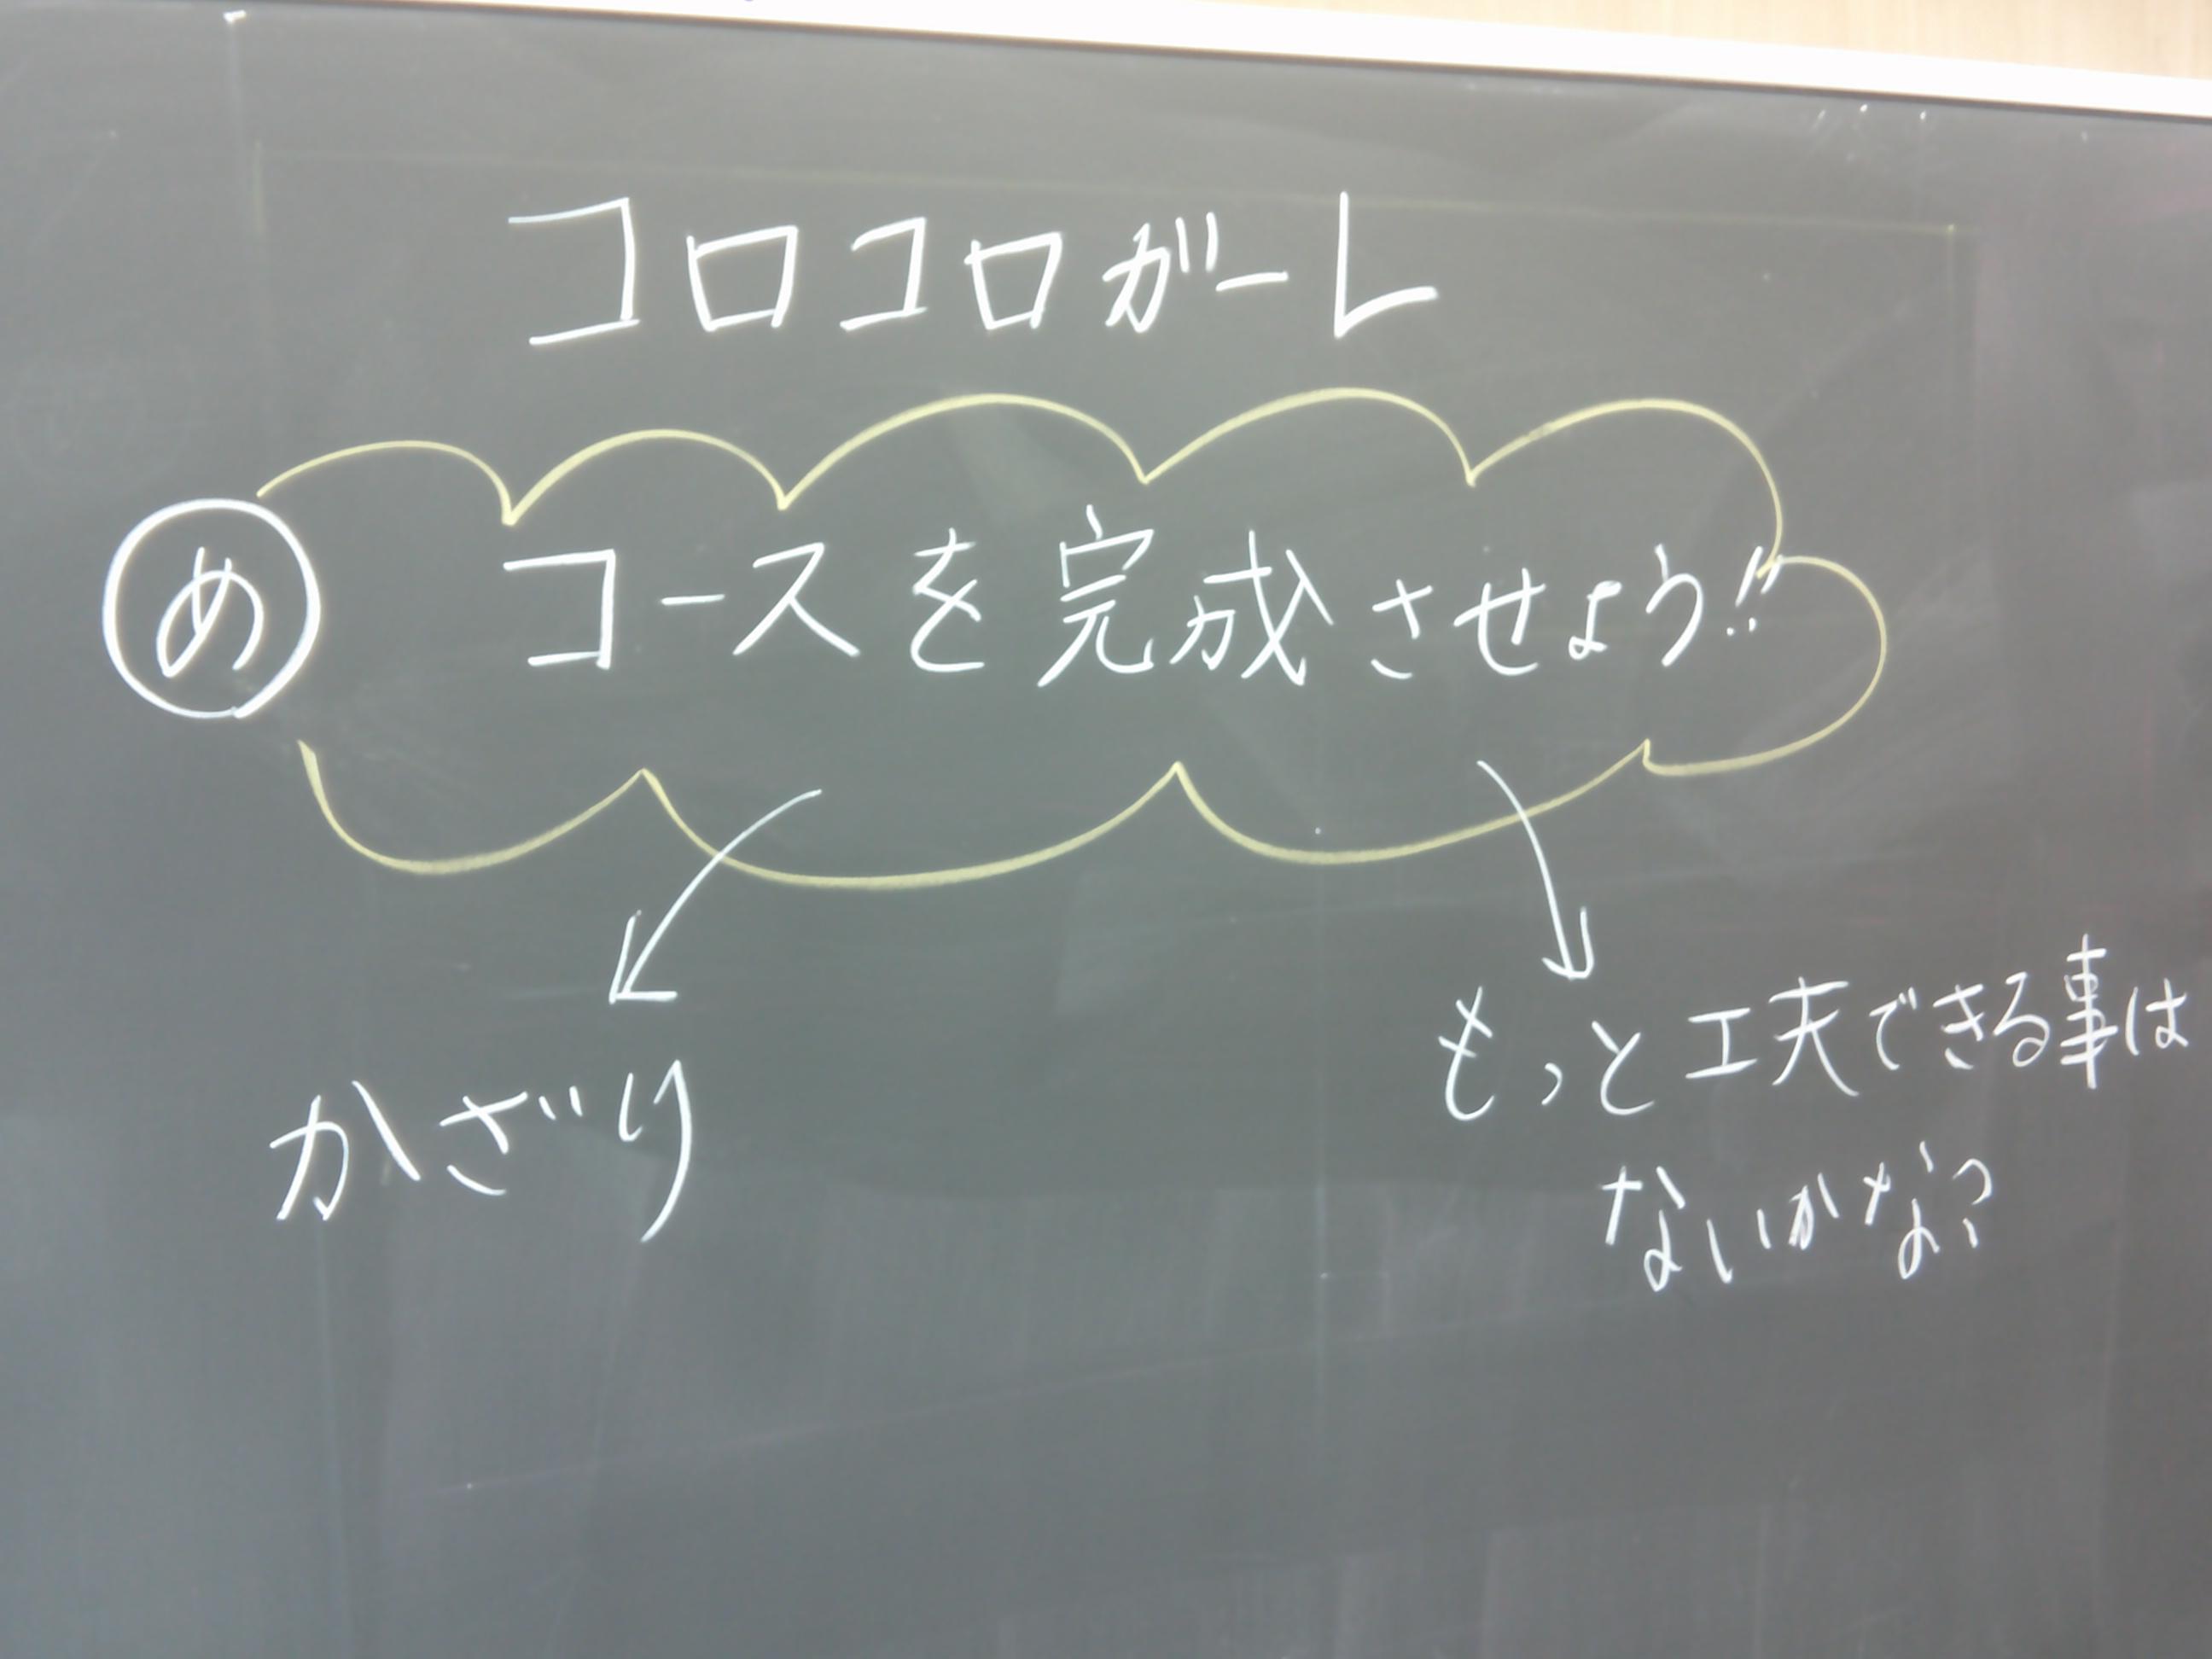 コロコロガーレ
め コースを完成させよう!!
かざり
もっと工夫できる事は
ないかな?